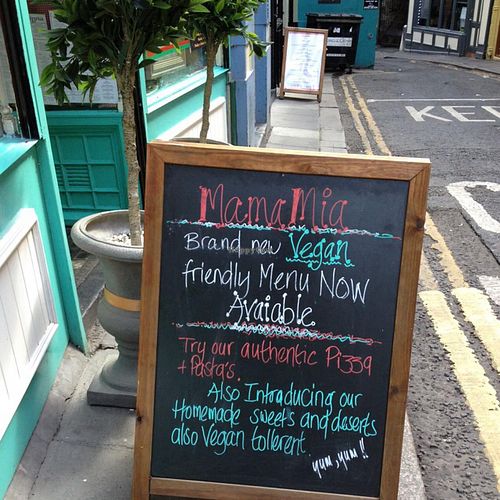 Mama Mia
Brand new Vegan
friendly Menu NOW
Avaiable
Try our authentic Pizza
+ Pasta's.
Also Introducing our
Homemade sweets and deserts
also Vegan tollerent
yum, yum !!
KE